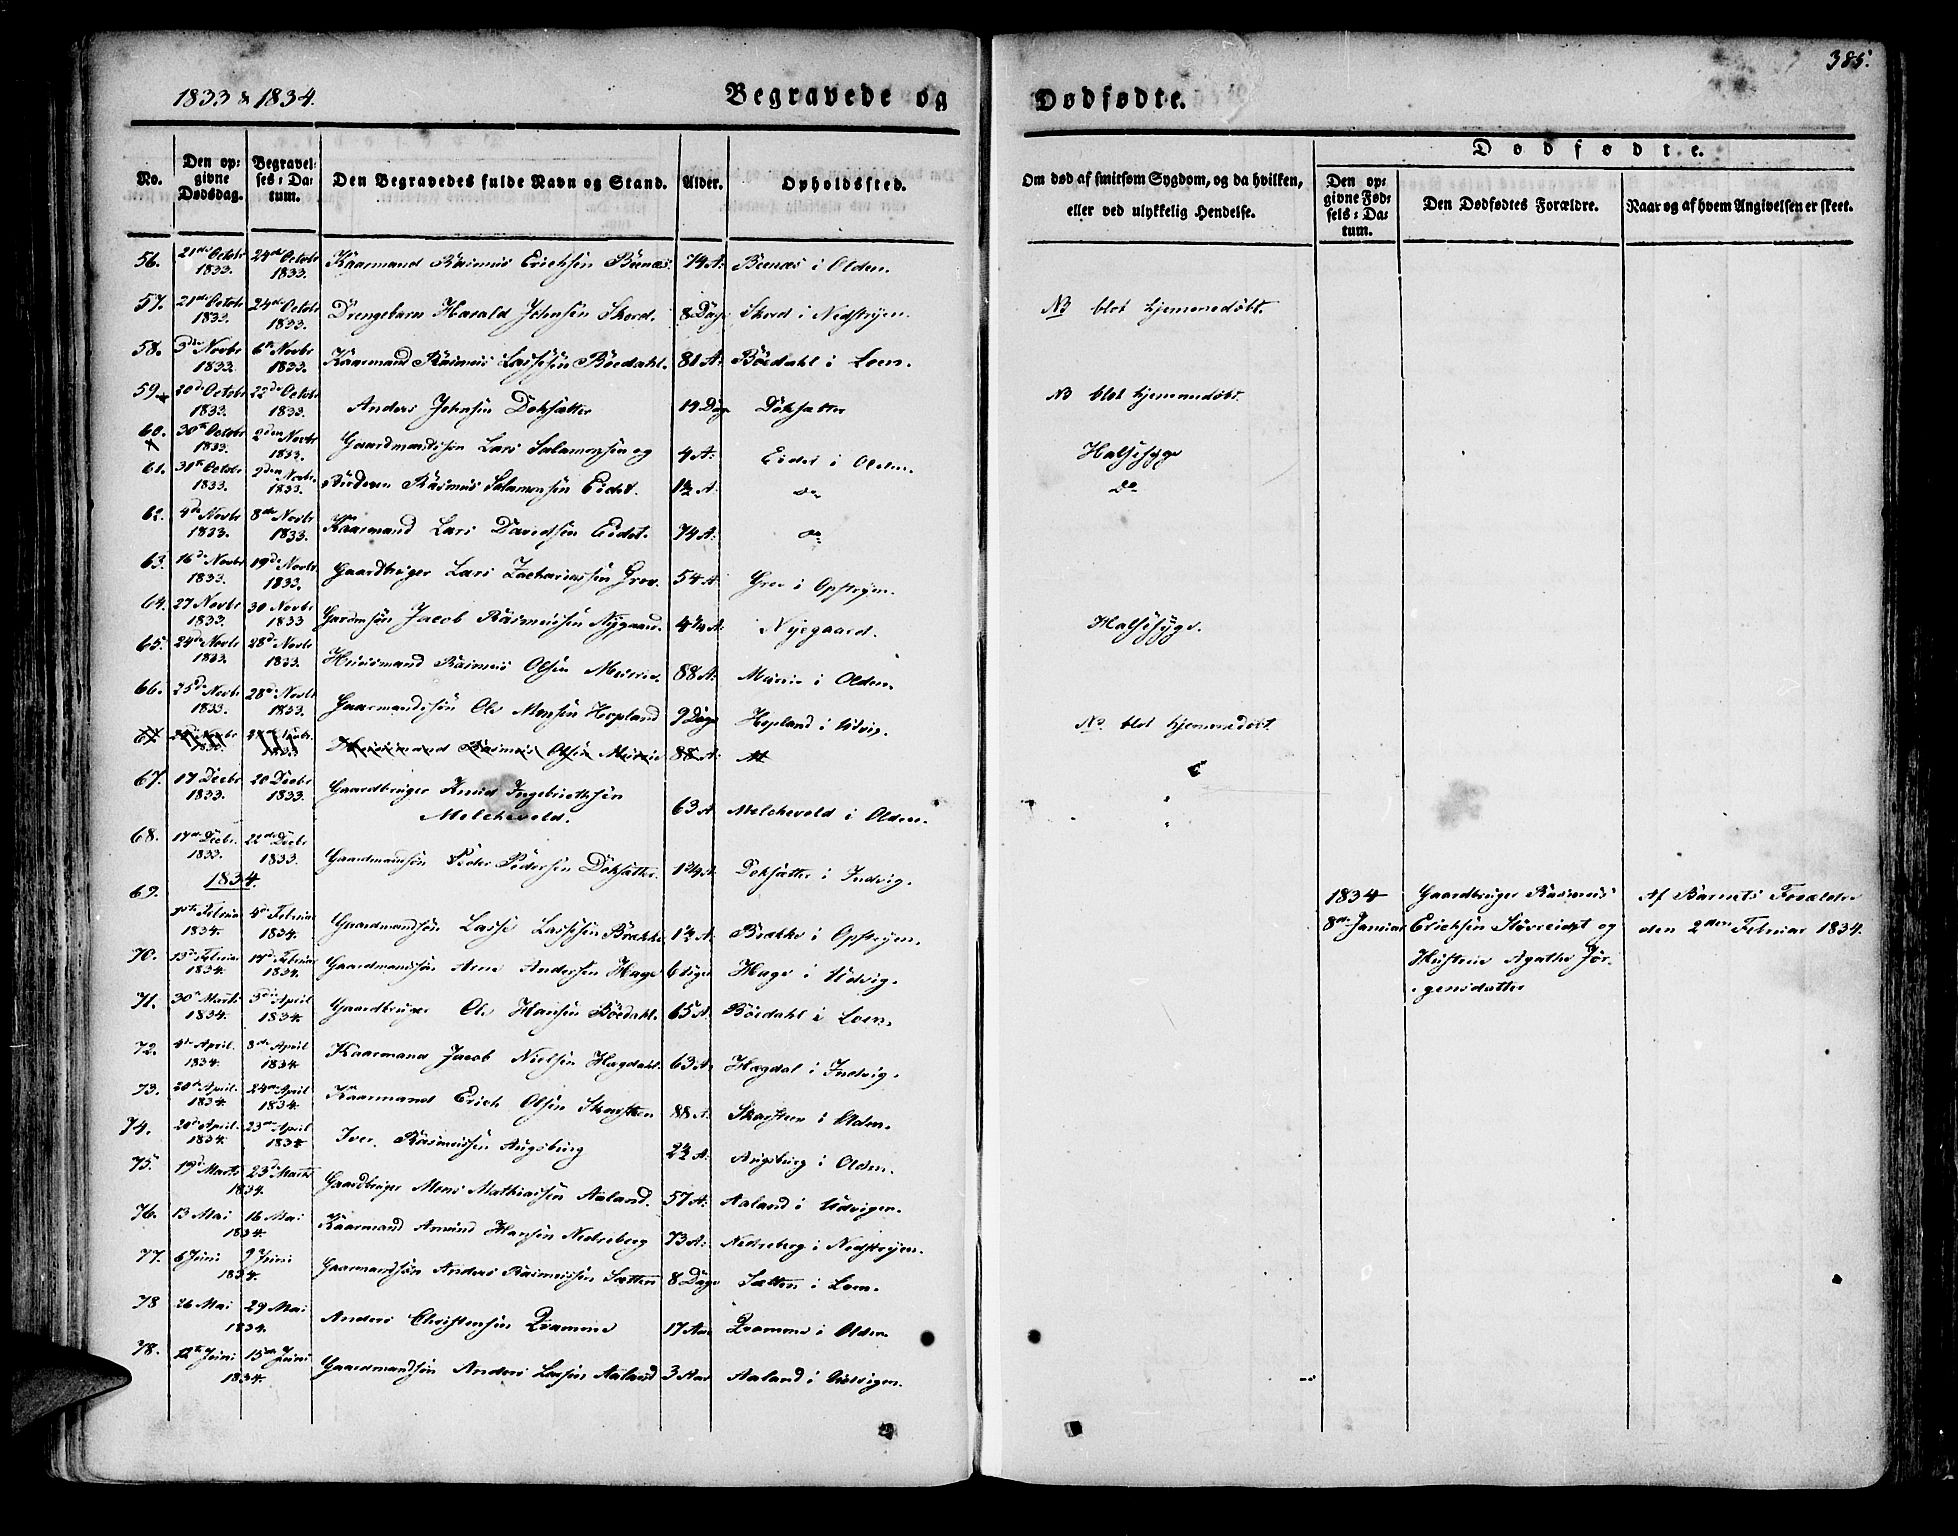 385.
1833 & 1834.
Begravede og
Dødfødte.
No.
Den opgivne Dødsdag.
Begravelses-Datum.
Den Begravedes fulde Navn og Stand.
Alder.
Opholdssted.
Om død af smitsom Sygdom, og da hvilken,
eller ved ulykkelig Hendelse.
Dødfødte.
Den opgivne Fødsels-Datum.
Den Dødfødtes Forældre.
Naar og af hvem Angivelsen er skeet.
56. 21de Octobr 1833. 24de Octobr 1833. Kaarmand Rasmus Erichsen Bænes. 74 A: Beenæs i Olden.
57. 21de Octobr 1833. 24de Octobr 1833. Drengebarn Harald Johnsen Skord. 8 Dage Skord i Nedstryen. NB blot hjemmedøbt.
58. 3de Novbr 1833. 6te Novbr 1833. Kaarmand Rasmus Lassesen Bøedahl. 81 A: Bödahl i Loen.
59. 20de Octobr 1833. 22de Octobr 1833. Anders Johnsen Doksætter 14 Dage Doksætter NB blot hjemmedøbt.
60. 30te Octobr 1833. 2den Novbr 1833. Gaardmandssøn Lars Salamonsen og 4 A: Eidet i Olden. Halssyge
61. 31te Octobr 1833. 2den Novbr. 1833. Broderen Rasmus Salamonsen Eidet. 1½ A. do do
62. 4de Novbr 1833. 8de Novbr 1833. Kaarmand Lars Davidsen Eidet. 74 A: do
63. 16de Novbr 1833. 19de Novbr 1833. Gaardbruger Lars Zachariassen Grov. 54 A: Grov i Opstryen.
64. 27 Novbr 1833. 30 Novbr 1833 Gaardmsøn Jacob Rasmussen Nygaard. 4¼ A: Nyegaard. Halssyge.
65. 24de Novbr 1833. 28de Novbr 1833. Huusmand Rasmus Olsen Muurie. 88 A: Muurie i Olden.
66. 25de Novbr 1833. 28de Novbr 1833. Gaarmandssøn Ole Monsen Hopland 9 Dage Hopland i Udvig. No. blot hjemmedøbt.
Huusmand Rasmus Olsen Muurie 88 A: M
67. 17 Decbr 1833. 20 Decbr 1833. Gaardbruger Knud Ingebrichtsen
Melchevold. 63 A Melchevold i Olden.
68. 17de Decbr. 1833. 22de Decbr 1833. Gaardmandsøn Peder Pedersen Doksætter. 1¾ A. Doksætter i Indvig.
1834.
69. 1ste Februar 1834. 4de Februar 1834. Gaardmandsøn Lasse Lassesen Brække 1½ A. Brække i Opstryen.
1834
8de Januar
Gaardbruger Rasmus
Erichsen Støvreidet og
Hustrue Agathe Jör-
gensdatter
Af Barnets Forælder
den 2den Februar 1834.
70. 13de Februar 1834. 17de Februar 1834. Gaardmandssøn Arne Andersen Hage 6 Uger Hage i Udvig.
71. 30te Marts 1834. 3de April 1834. Gaardbruger Ole Hansen Böedahl. 65 A. Böedahl i Loen.
72. 4de April. 1834. 8de April 1834. Kaarmand Jacob Nielsen Hægdahl. 63 A. Hægdal i Indvig.
73. 20de April. 1834. 24de April 1834. Kaarmand Erich Olsen Skarsteen 88 A. Skarsteen i Olden.
74. 20de April. 1834. 23de April 1834. Iver Rasmussen Augsburg 2½ A: Augsburg i Olden.
75. 19de Marts 23de Marts 1834. Gaardbruger Mons Mathiassen Aaland. 57 A: Aaland i Udvigen.
76. 13 Mai 16 Mai 1834. Kaarmand Amund Hansen Nedreberg 73 A: Nedreberg i Nedstryen.
77. 6 Juni 9 Juni 1834. Gaarmandsøn Anders Rasmussen Sætten 8 Dage Sætten i Loen.
78 26 Mai 29 Mai 1834. Anders Christensen Qvamme 17 Aar Qvamme i Olden.
78. 12te Juni 15de Juni 1834. Gaardmandsøn Anders Lassen Aaland 3 Aar Aaland i Udvigen.